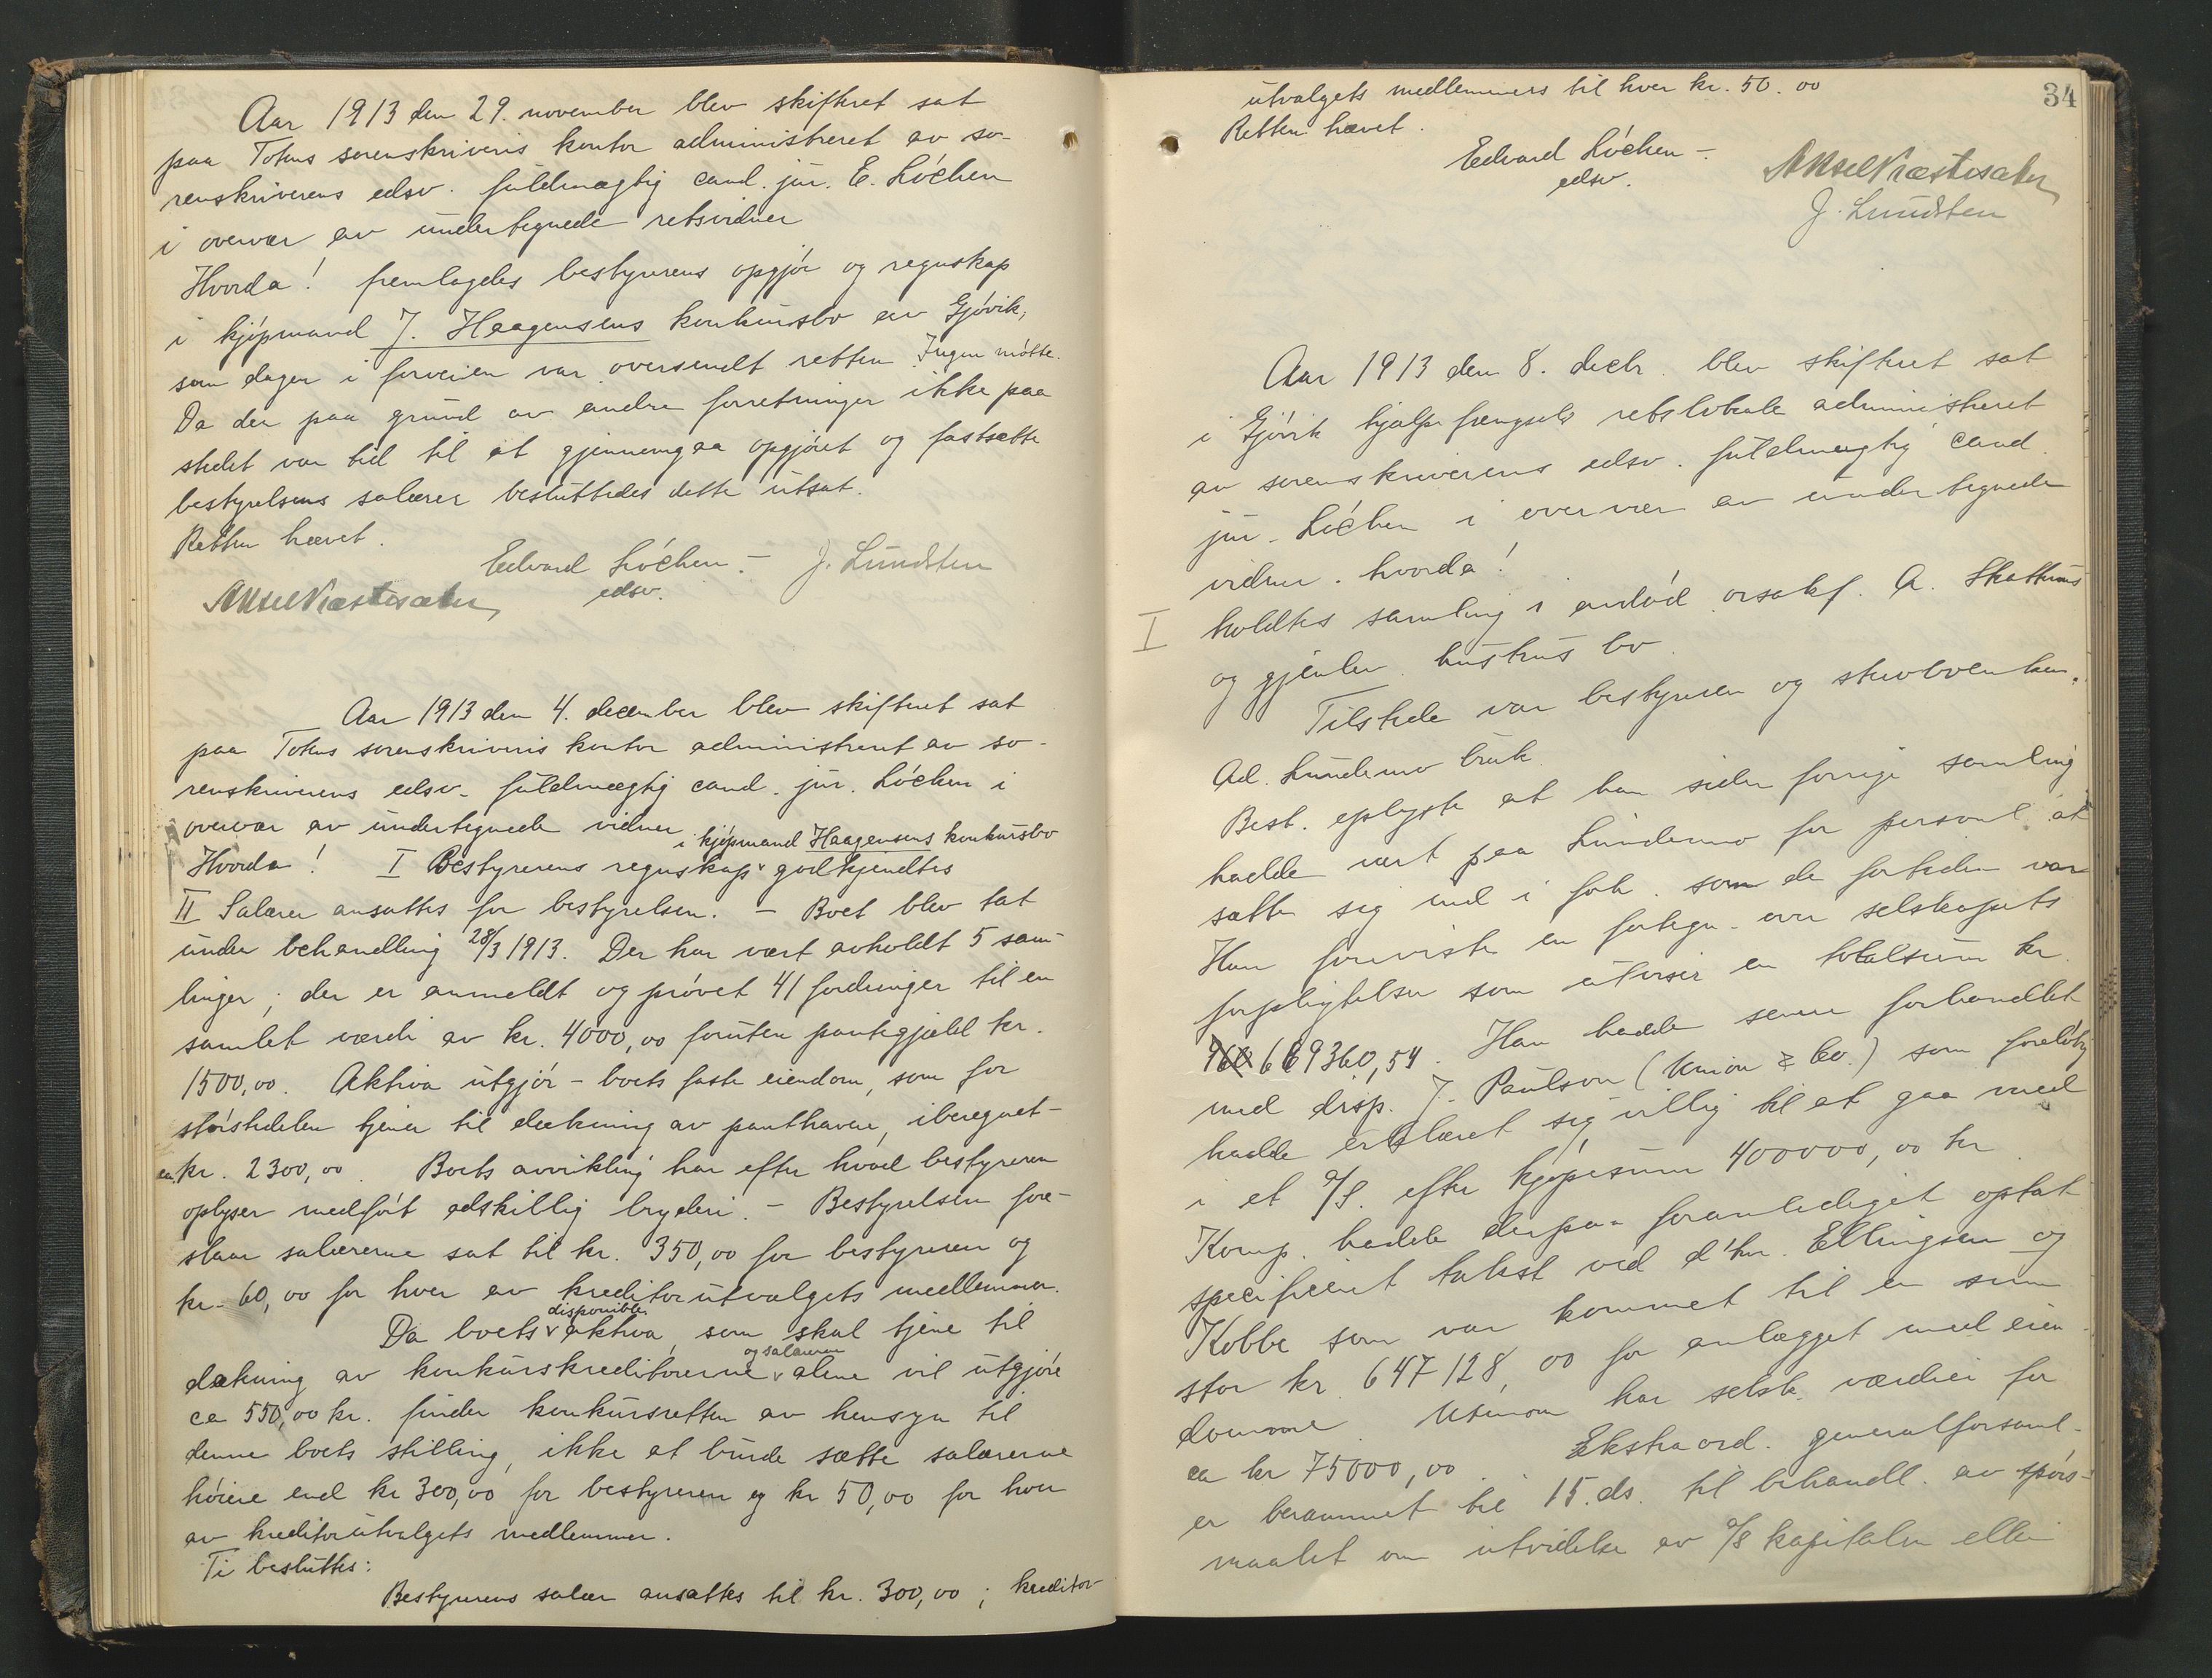 Aar 1913 den 29. november blev skifteret sat
paa Totens sorenskriveris kontor administreret av so-
renskriverens edsv. fuldmægtig cand. jur. E. Lóchen
i overvær av undertegnede retsvidner
Hvorda! fremlagdes bestyrerens opgjór og regnskap
i kjópmand J. Haagensens konkursbo av Gjóvik,
som dagen i forveien var oversendt retten. Ingen mótte.
Da der paa grund av andre forretninger ikke paa
stedet var tid til at gjennemgaa opgjóret og fastsætte
bestyrelsens salærer besluttedes dette utsat.
Retten hævet.
Edvard Lóchen. - J. Lundsten
edsv.
Aksel Præstesæter
Aar 1913 den 4. december blev skifteret sat
paa Totens sorenskriveris kontor administreret av so-
renskriverens edsv. fuldmægtig cand. jur. Lóchen i
overvær av undertegnede vidner
i kjópmand Haagensens konkursbo
Hvorda! I Bestyrerens regnskap godkjendtes
II Salærer ansattes for bestyrelsen. - Boet blev tat
under behandling 28/3 1913. Der har vært avholdt 5 sam-
linger; der er anmeldt og próvet 41 fordringer til en
samlet værdi av kr. 4000,00 foruten pantegjæld kr.
1500,00. Aktiva utgjór - boets faste eiendom, som for
stórstedelen tjener til dækning av panthavere, iberegnet -
ca. kr. 2300,00. Boets avvikling har efter hvad bestyreren
oplyser medfórt adskillig bryderi. - Bestyrelsen fore-
slaar salærerne sat til kr. 350,00 for bestyreren og
kr. 60,00 for hver av kreditorutvalgets medlemmer.
disponible
Da boets aktiva, som skal tjene til
og salærerne
dækning av konkurskreditorerne alene vil utgjóre
ca 550,00 kr. finder konkursretten av hensyn til
denne boets stilling, ikke at burde sætte salærerne
hóiere end kr 300,00 for bestyreren og kr 50,00 for hver
av kreditorutvalgets medlemmer.
Ti besluttes:
Bestyrerens salær ansættes til kr. 300,00; kreditor-
34
utvalgets medlemmers til hver kr. 50.00
Retten hævet.
Edvard Lóchen -
edsv.
Aksel Præstesæter
J. Lundsten
Aar 1913 den 8. decbr. blev skifteret sat
i Gjóvik hjælpefængsels retslokale administreret
av sorenskriverens edsv. fuldmægtig cand.
jur. Lóchen i overvær av undertegnede
vidner. hvorda!
I
holdtes samling i avdód orsakf. A. Skattums
og gjenlev. hustrus bo
Tilstede var bestyreren og
Ad. Lundemo bruk.
Best. oplyste at han siden forrige samling
hadde vært paa Lundemo for personl. at
sætte sig ind i forh. som de fortiden var
Han foreviste en fortegn. over selskapets
forpligtelser som utviser en totalsum kr.
669360,54. Han hadde senere forhandlet
med disp. J. Paulson (Union & Co.) som forelóbig
hadde erklæret sig villig til at gaa med
i et A/S. efter kjópesum 400000,00 kr.
Komp. hadde derpaa foranlediget optat
specificeret takst ved d'hr. Ellingsen og
Kobbe som var kommet til en sum
stor kr. 647128,00 for anlægget med eien
domme. Utenom har selsk. værdier for
ca kr 75000,00. Ekstraord. generalforsaml.
er berammet til 15. ds. til behandl. av spórs-
maalet om utvidelse av A/S kapitalen eller